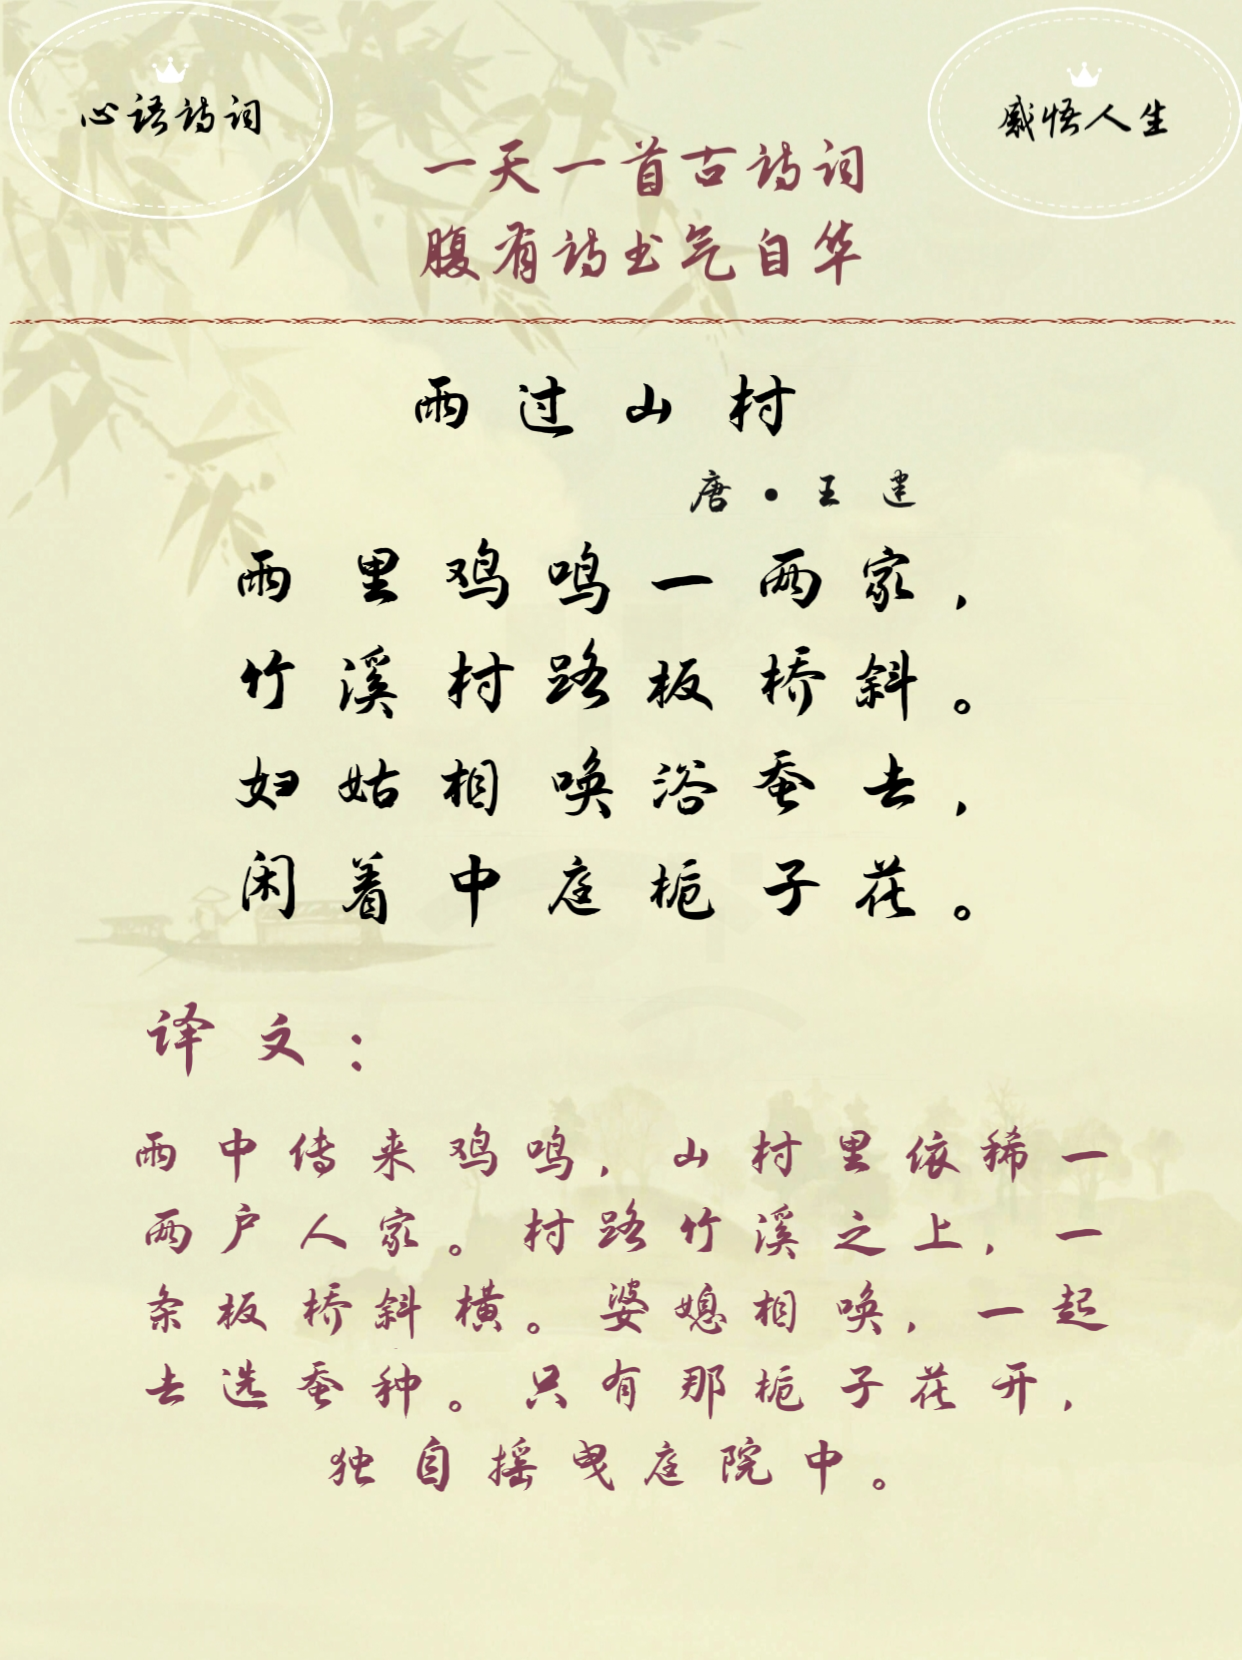 心语诗词
感悟人生
一天一首古诗词
腹有诗书气自华
雨过山村
唐·王建
雨里鸡鸣一两家，
竹溪村路板桥斜。
妇姑相唤浴蚕去，
闲着中庭栀子花。
译文：
雨中传来鸡鸣，山村里依稀一
两户人家。村路竹溪之上，一
条板桥斜横。婆媳相唤，一起
去选蚕种。只有那栀子花开，
独自摇曳庭院中。